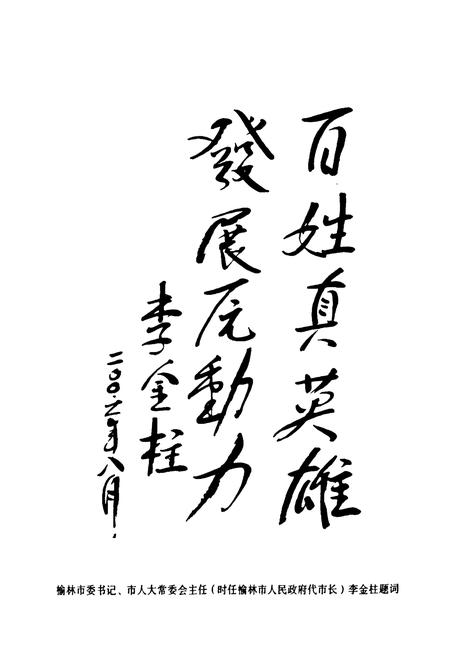 百姓真英雄
發展原動力
李金柱
二〇〇六年八月
榆林市委书记、市人大常委会主任（时任榆林市人民政府代市长）李金柱题词